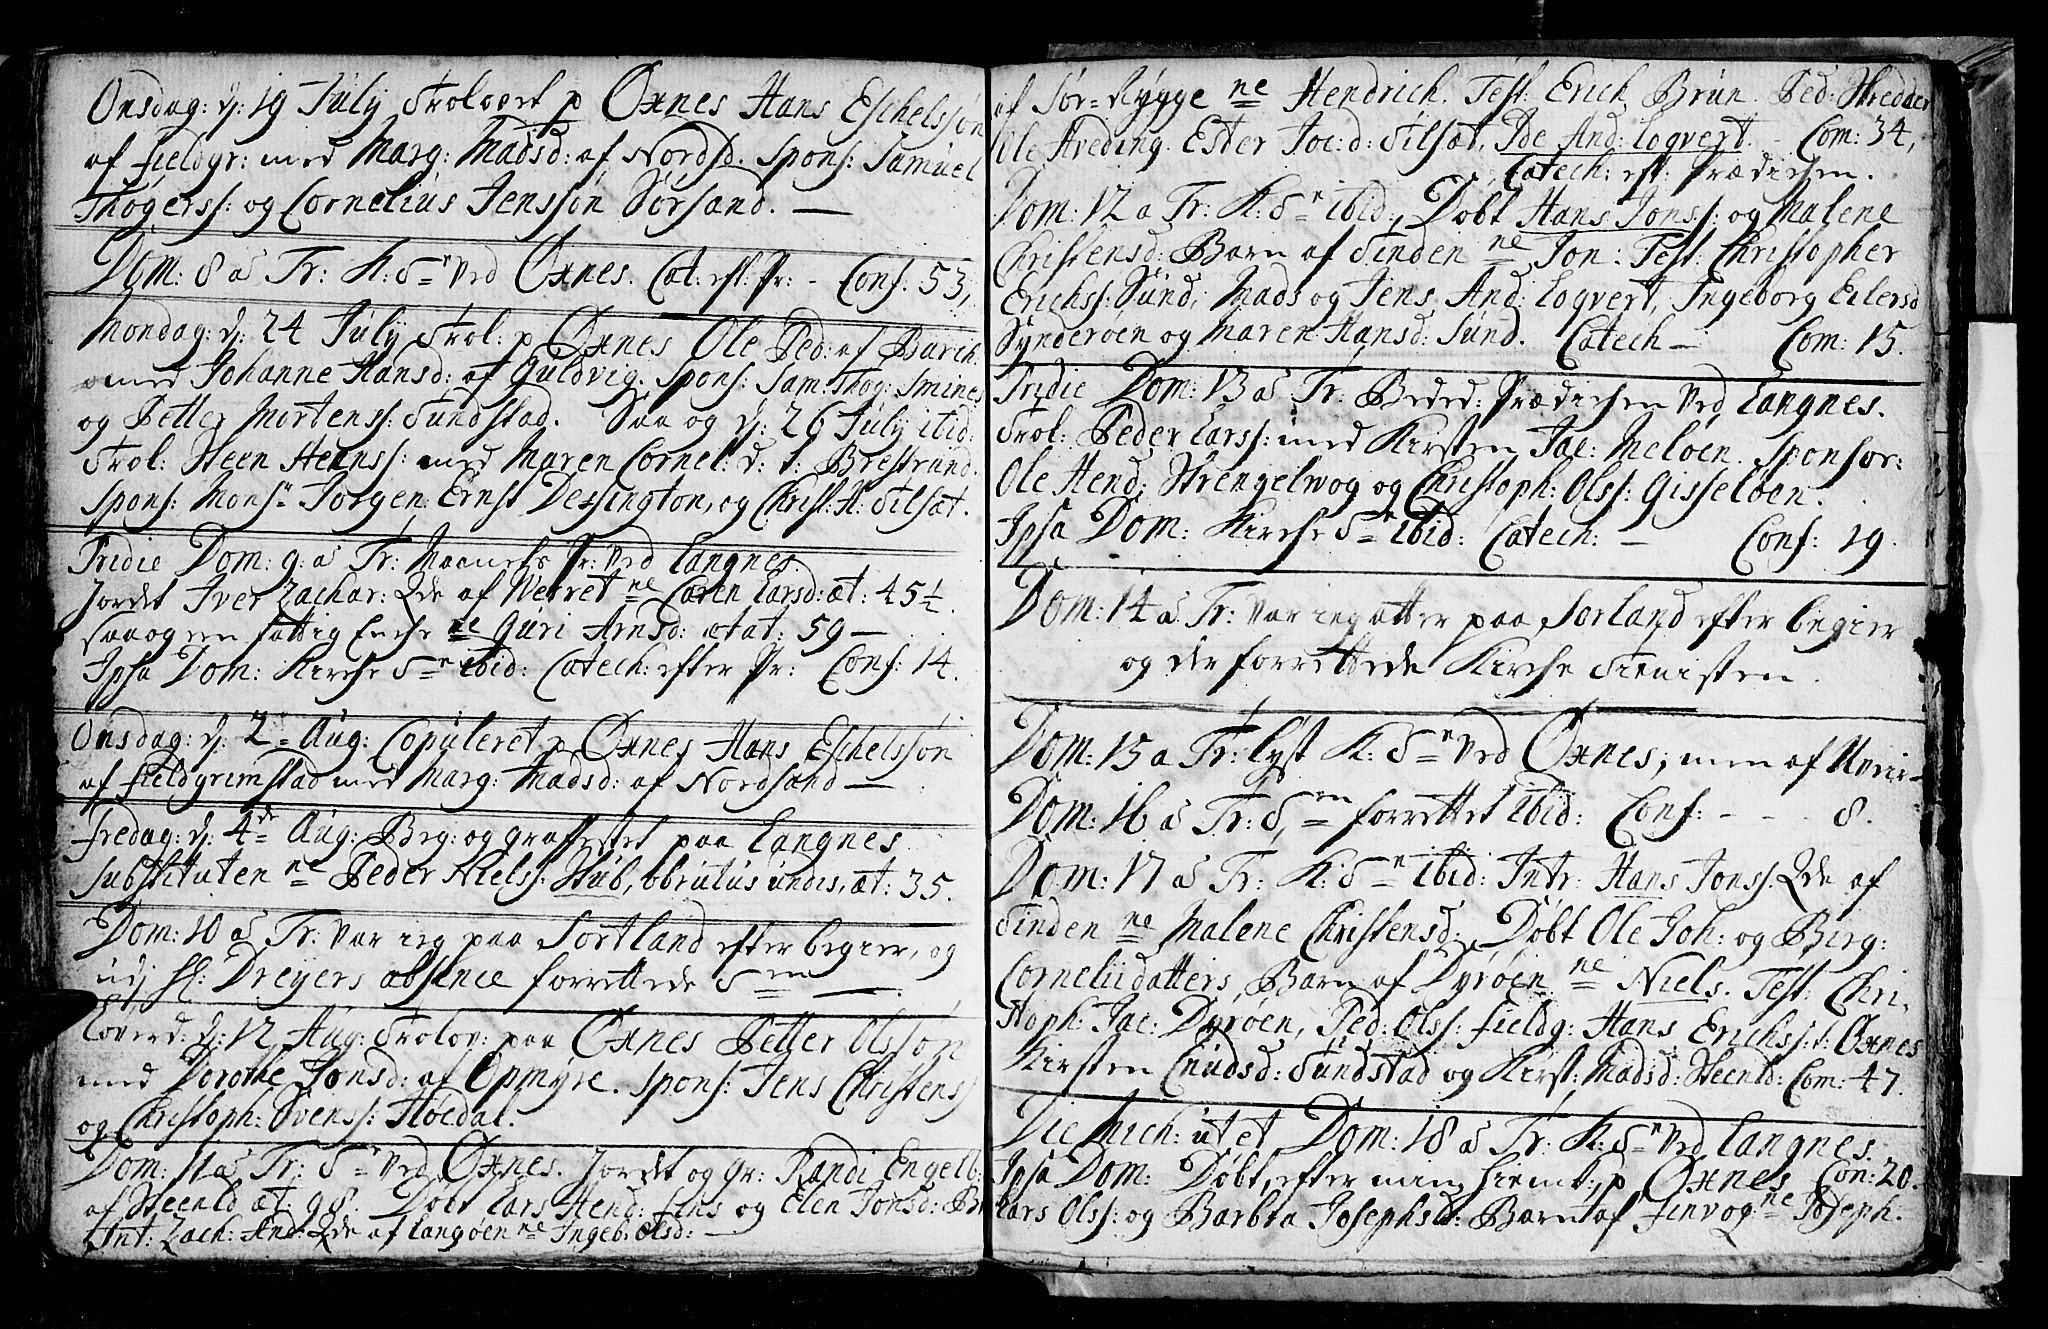 Onsdag: d: 19 July Trolovet p Øxnes Hans Eschelssøn
af Fieldgr: med Marg: Madsd: af Nordsd. Spons: Samuel
Thøgerss: og Cornelius Jenssøn Sørsand. —
Dom: 8 a Tr: K: Sn ved Øxnes. Cat: eft: Pr: - Conf: 53,
Mondag: d: 24 July Trol: p Øxnes Ole Ped: af Barck:
med Johanne Hansd: af Guldvig. Spons: Sam: Thog: Smines
og Petter Mortenss: Sundstad. Saa og d: 26 July ibid:
Trol: Steen Heans: med Maren Cornel: d: s: Brestrand.
Spons: Mons: Jørgen Ernst Dessington, og Christ: H: Tilsæt.
Pridie Dom: 9 a Tr: Maanets Pr: ved Langnes.
Jordet Iver Zachar: Qde af Vetret ne Caren Larsd: æt: 45½.
saa og een fattig Enche ne Guri Arnsd: ætat: 59 —
Ipsa Dom: Kirche Sn ibid: Catech: efter Pr: Conf: 14.
Onsdag: d: 2 Aug: Copuleret p Øxnes Hans Eschelssøn
af Fieldgrimstad med Marg: Madsd: af Nordsand —
Fredag: d: 4de Aug: Beg: og graffestet paa Langnes
Substituten ne Peder Nielss: Stub, obrutus undis, æt: 35.
Dom: 10 a Tr: var ieg paa Sortland efter begier, og
udj Hl: Dreyers absence forrettede Sen —
Løverd: d: 12 Aug: Trolov: paa Øxnes Petter Olssøn
med Dorothe Jonsd: af Opmyre. Spons: Jens Christens:
og Christoph: Svenss: Høedal.
Dom: 11 a Tr: Sn ved Øxnes. Jordet og Gr: Randi Engelb:
af Steenld æt: 98. Døbt Lars Hend: Lens og Elen Jonsd: B
Int: Zach: And: Qde af Langøen ne Ingeb: Olsd: —
af Sør-Rygge ne Hendrich. Test: Erich Brun. Ped: Skredder
Ole Areding. Ester Joc: d: Tilsæt, Ide And: Logvert. - Com: 34,
Catech: eft: Prædichen.
Dom: 12 a Tr: K: Sn ibid: Døbt Hans Jonss: og Malene
Christensd: Barn af Tinden ne Jon: Test: Christopher
Erichss: Sund, Mads og Jens And: Logvert, Ingeborg Eilersd
Synderøen og Maren Hansd: Sund. Catech — Com: 15.
Pridie Dom: 13 a Tr: Beded: Prædichen ved Langnes.
Trol: Peder Larss: med Kirsten Jac: Meløen. Sponsor:
Ole Hend: Strengelwog og Christoph: Olss: Gisseløen.
Ipsa Dom: Kirche Sn ibid: Catech: — Conf: 19.
Dom: 14 a Tr: var ieg atter paa Sortland efter begier
og der forrettede Kirche Tienisten.
Dom: 15 a Tr: lyst K: Sn ved Øxnes; men af Uveir-
Dom: 16 a Tr: Sen forrettet ibid: Conf: - - - 8.
Dom: 17 a Tr: K: Sn ibid: Intr: Hans Jonss: Qde af
Tinden ne Malene Christensd: Døbt Ole Joh: og Berg:
Corneliidatters Barn af Dyrøen ne Niels. Test: Chri-
stoph: Jac: Dyrøen, Ped: Olss: Fieldg: Hans Erichss: s: Øxnes
Kirsten Cnudsd: Sundstad og Kirst: Madsd: Steenld: Com: 47.
Die Mich: ut et Dom: 18 a Tr: K: Sn ved Langnes.
Ipsa Dom: Døbt, efter min Hiemk:, p Øxnes Con: 20.
Lars Olss: og Barbra Josephsd: Barn af Finvog ne Joseph.